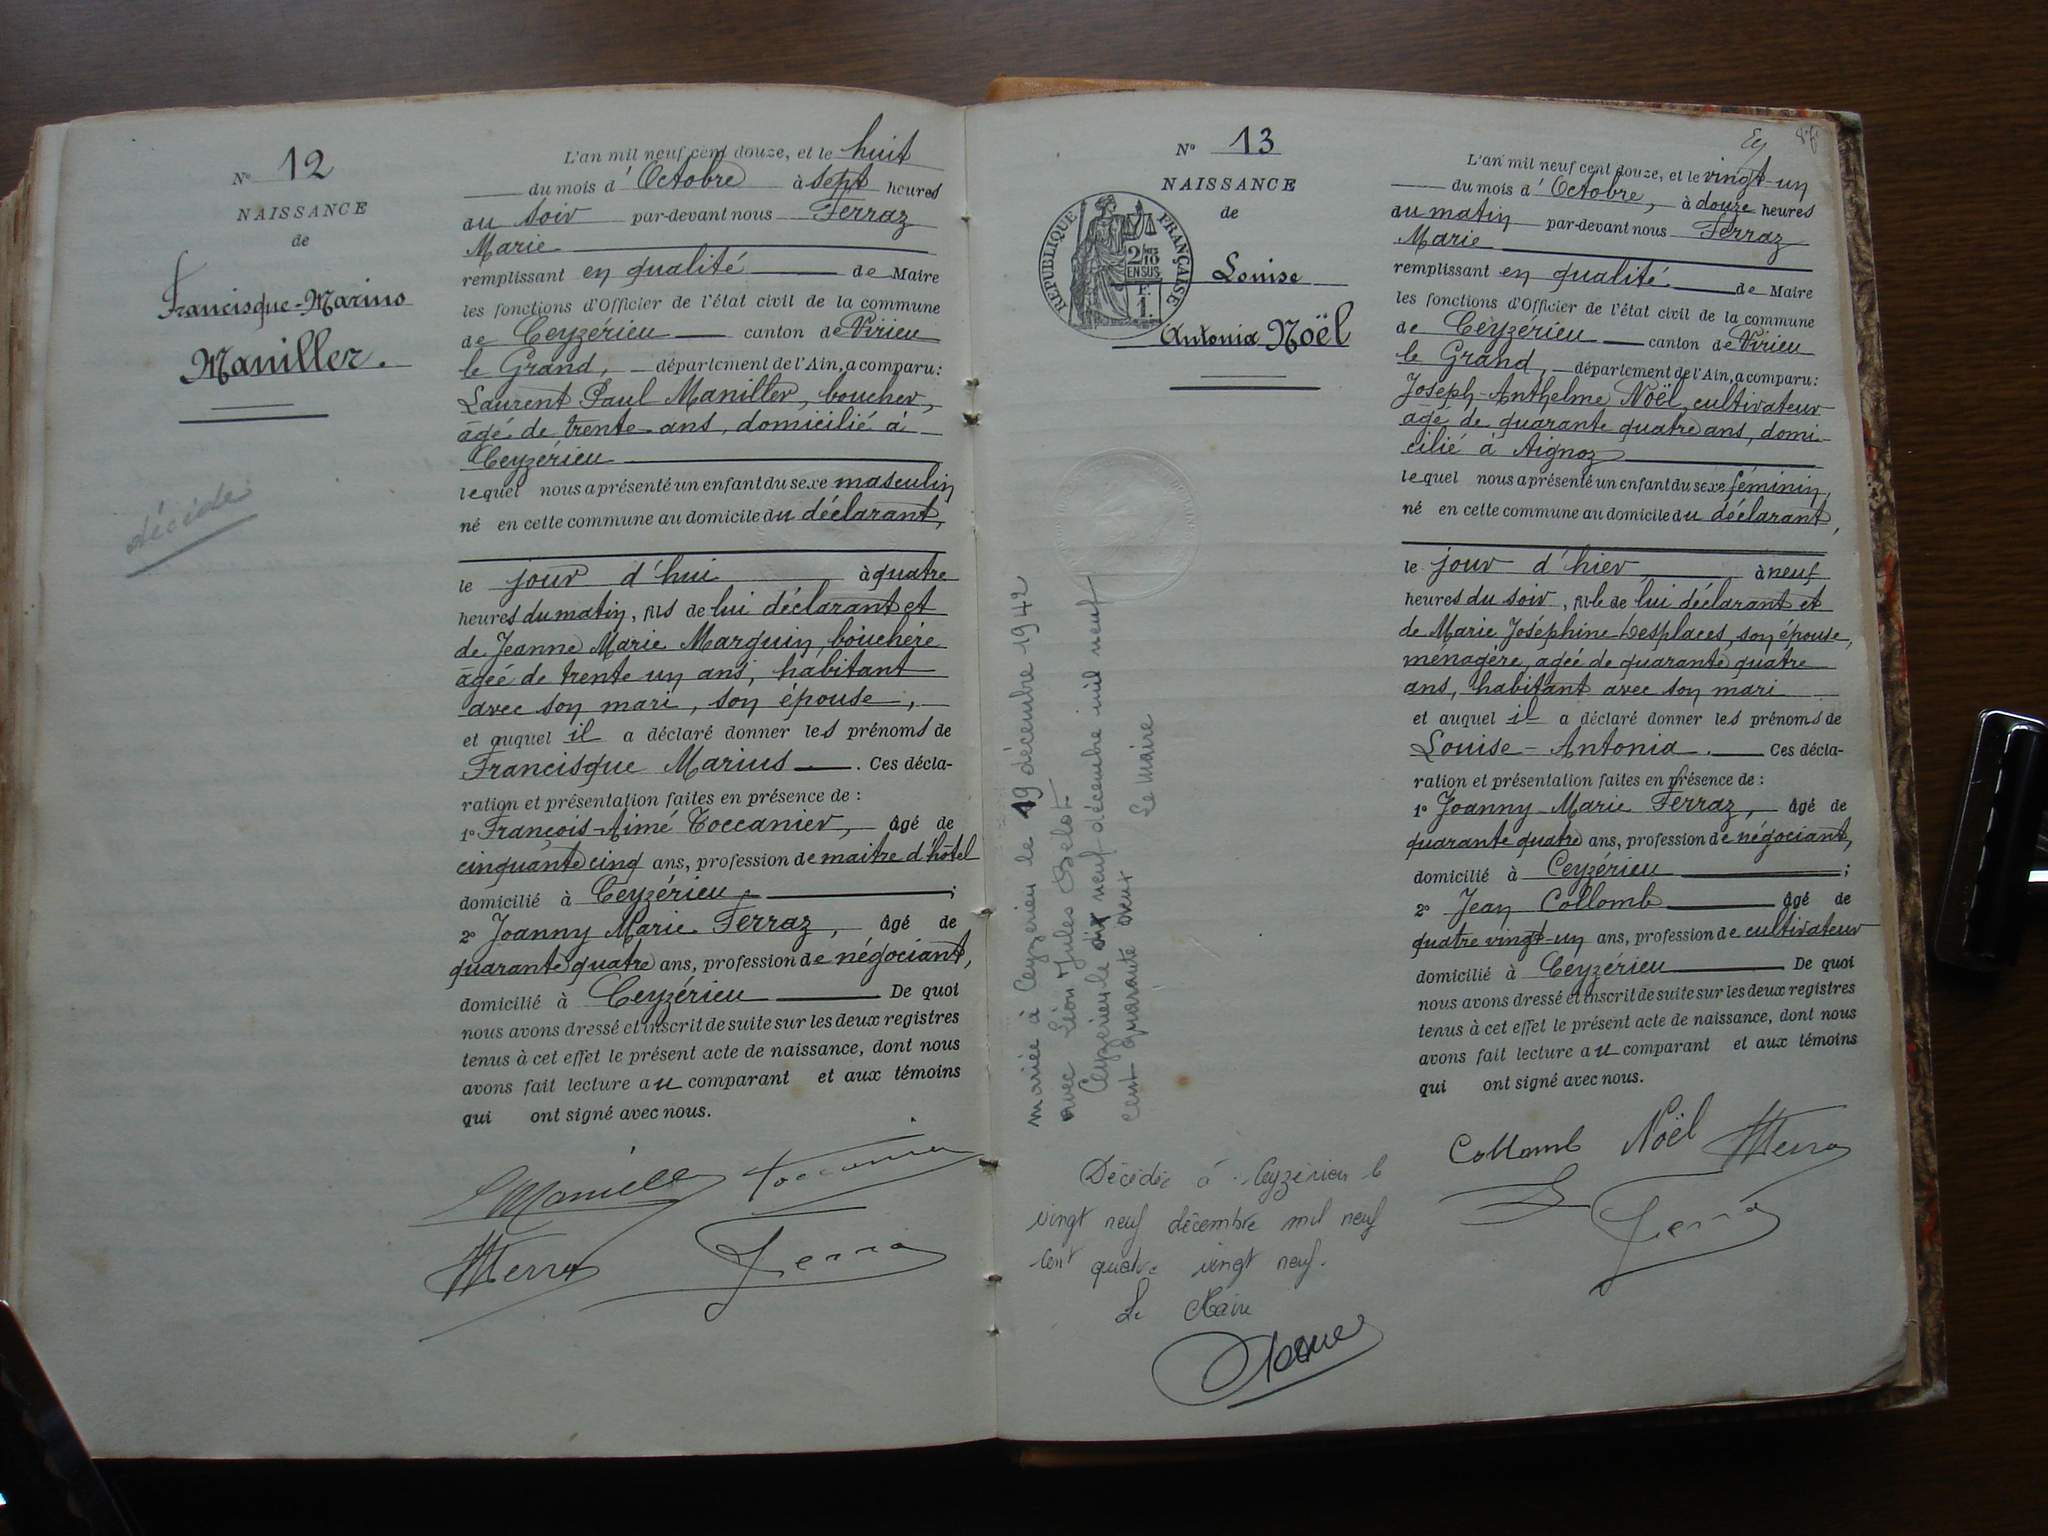 Nº 12
NAISSANCE
de
Francisque-Marius
Maniller.
décédé
L'an mil neuf cent douze, et le huit
du mois d'Octobre à sept heures
du soir par-devant nous Ferraz
Marie
remplissant en qualité de Maire
les fonctions d'Officier de l'état civil de la commune
de Ceyzérieu canton de Virieu
le Grand, département de l'Ain, a comparu:
Laurent Paul Maniller, boucher,
âgé de trente ans, domicilié à
Ceyzérieu
lequel nous a présenté un enfant du sexe masculin
né en cette commune au domicile du déclarant,
le jour d'hui à quatre
heures du matin, fils de lui déclarant et
de Jeanne Marie Marguin, bouchère
âgée de trente un ans, habitant
avec son mari, son épouse,
et auquel il a déclaré donner les prénoms de
Francisque Marius. Ces décla-
ration et présentation faites en présence de :
1º François-Aimé Toccanier, âgé de
cinquante cinq ans, profession de maitre d'hôtel
domicilié à Ceyzérieu ;
2º Joanny Marie Ferraz, âgé de
quarante quatre ans, profession de négociant,
domicilié à Ceyzérieu De quoi
nous avons dressé et inscrit de suite sur les deux registres
tenus à cet effet le présent acte de naissance, dont nous
avons fait lecture au comparant et aux témoins
qui ont signé avec nous.
Maniller Toccanier
Ferraz
Nº 13
NAISSANCE
de
RÉPUBLIQUE FRANÇAISE
2/10
EN SUS
F.
1.
Louise
Antonia Noël
mariée à Ceyzérieu le 19 décembre 1942
avec Léon Jules Belot
Ceyzérieu le dix neuf décembre mil neuf
cent quarante deux
Le Maire
Décédée à Ceyzérieu le
vingt neuf décembre mil neuf
cent quatre vingt neuf.
Le Maire
L'an mil neuf cent douze, et le vingt-un
du mois d'Octobre, à douze heures
du matin par-devant nous Ferraz
Marie
remplissant en qualité de Maire
les fonctions d'Officier de l'état civil de la commune
de Ceyzérieu canton de Virieu
le Grand, département de l'Ain, a comparu:
Joseph-Anthelme Noël, cultivateur
âgé de quarante quatre ans, domi-
cilié à Aignoz
lequel nous a présenté un enfant du sexe féminin,
né en cette commune au domicile du déclarant,
le jour d'hier à neuf
heures du soir, fille de lui déclarant et
de Marie Joséphine Desplaces, son épouse,
ménagère, agée de quarante quatre
ans, habitant avec son mari
et auquel il a déclaré donner les prénoms de
Louise-Antonia. Ces décla-
ration et présentation faites en présence de :
1º Joanny Marie Ferraz, âgé de
quarante quatre ans, profession de négociant,
domicilié à Ceyzérieu ;
2º Jean Collomb âgé de
quatre vingt-un ans, profession de cultivateur
domicilié à Ceyzérieu De quoi
nous avons dressé et inscrit de suite sur les deux registres
tenus à cet effet le présent acte de naissance, dont nous
avons fait lecture au comparant et aux témoins
qui ont signé avec nous.
Collomb Noël
Ferraz